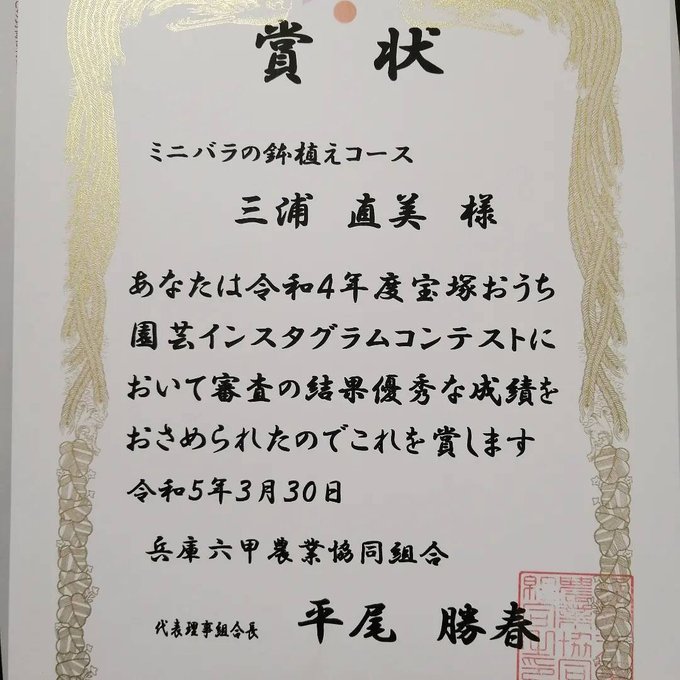 賞状
ミニバラの鉢植えコース
三浦 直美 様
あなたは令和4年度宝塚おうち
園芸インスタグラムコンテストに
おいて審査の結果優秀な成績を
おさめられたのでこれを賞します
令和5年3月30日
兵庫六甲農業協同組合
代表理事組合長 平尾 勝春